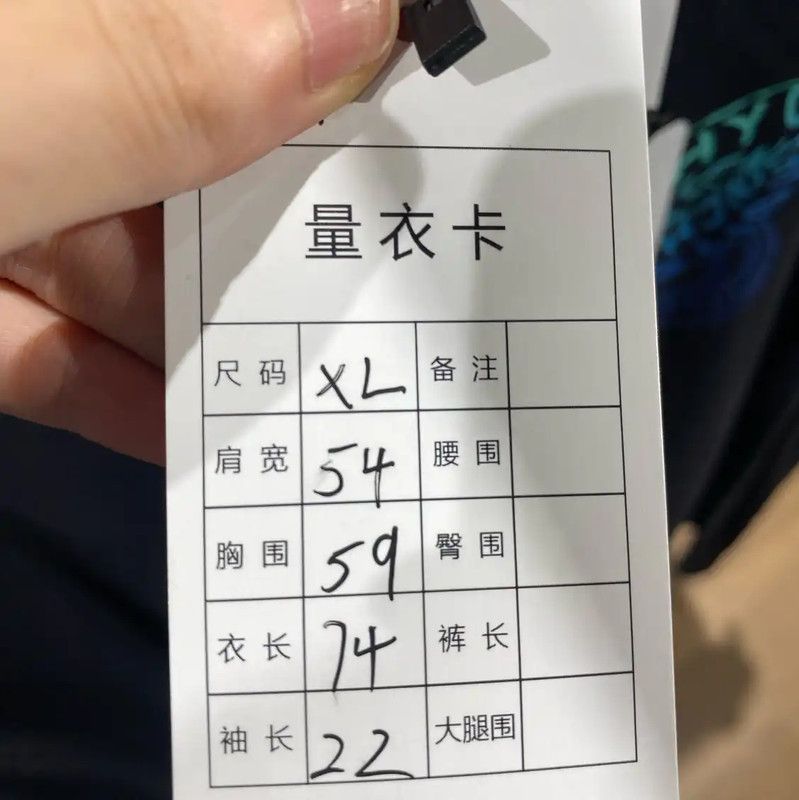 量衣卡
尺码 XL 备注
肩宽 54 腰围
胸围 59 臀围
衣长 74 裤长
袖长 22 大腿围